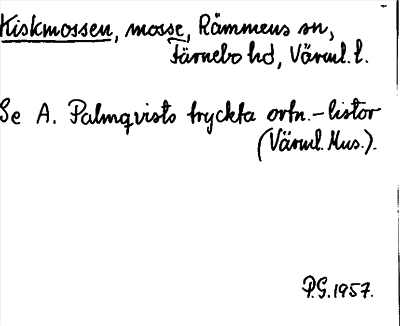 Kiskmossen, mosse, Rämmens sn,
Färnebo hd, Värml. l.
Se A. Palmqvists tryckta ortn.-listor
(Värml. Mus.).
P.G. 1957.